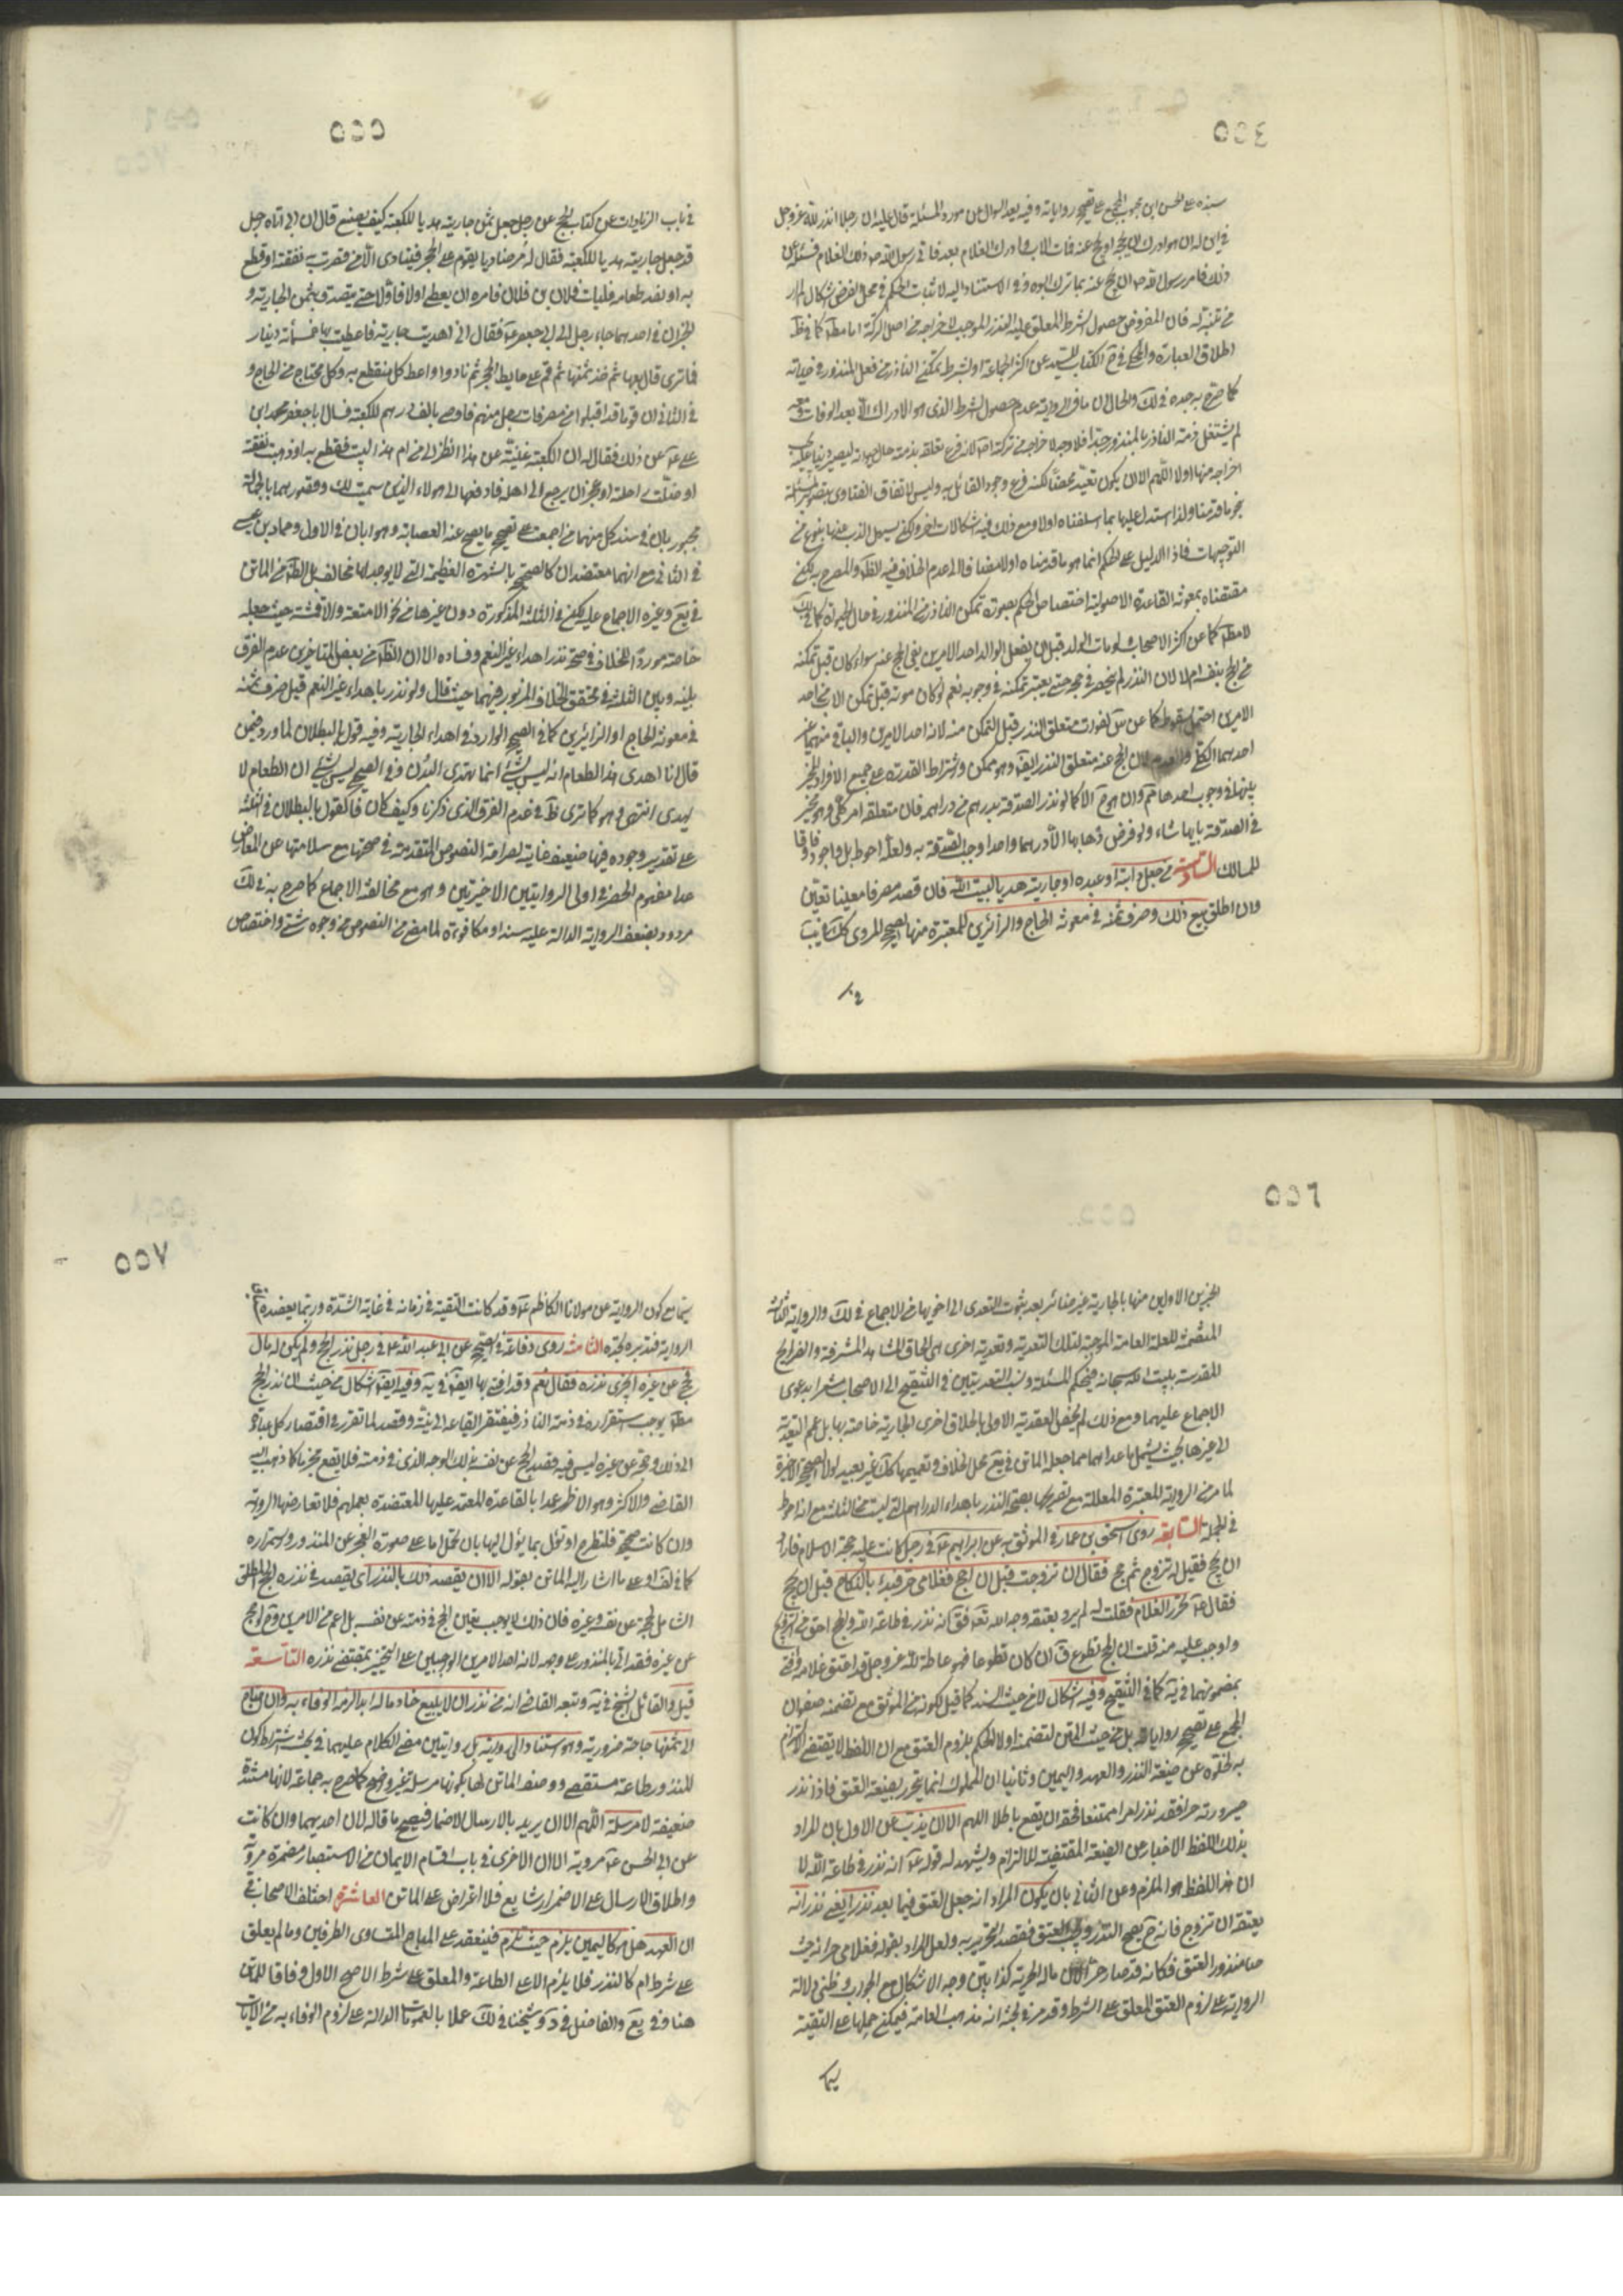 ٥٥٤
سنده على الحسن ابن محبوب المجمع على تصحيح رواياته وفيه بعد السوال عن مورد المسئلة قال عليه ان رجلا نذر لله عز وجل
في ابن له ان هو ادرك ان يحجه او يحج عنه فمات الاب وادرك الغلام بعد فاتى رسول الله ص ذلك الغلام فسئله عن
ذلك فامر رسول الله ص ان يحج عنه مما ترك ابوه وفي الاستناد اليه لاثبات الحكم في محل الفرض اشكال لم ار
من تنبه له فان المفروض حصول الشرط المعلق عليه النذر الموجب لاخراجه من اصل التركة اما مطلقا كما في ظ
اطلاق العبارة والمحكى في الكتاب للسيد عن اكثر الجماعة او بشرط تمكن الناذر من فعل المنذور في حياته
كما صرح به جده في لك والحال ان ما في الرواية عدم حصول الشرط الذي هو الادراك الا بعد الوفات ومعه
لم يشتغل ذمة الناذر بالمنذور جدا فلا وجه لاخراجه من تركته اصلا لانه فرع تعلقه بذمته حال حيوته ليصير دينا عليه يجب
اخراجه منها اولا اللهم الا ان يكون تعبدا محضا لكنه فرع وجود القائل به وليس لاتفاق الفتاوى بتصوير المسئلة
بنحو ما قدمنا ولذا استدل عليها بما اسلفناه اولا ومع ذلك فيه اشكالات اخر ولكن يسهل الذب عنها بنوع من
التوجيهات فاذا الدليل على الحكم انما هو ما قدمناه اولا مضافا الى عدم الخلاف فيه الظاهر والمصرح به لكن
مقتضاه بمعونة القاعدة الاصولية اختصاص الحكم بصورة تمكن الناذر من المنذور في حال الحيوة كما في لك
لا مطلقا كما عن اكثر الاصحاب ولو مات الولد قبل ان يفعل الوالد احد الامرين بقى الحج عنه سواء كان قبل تمكنه
من الحج بنفسه ام لا لان النذر لم ينحصر في حجه حتى يعتبر تمكنه في وجوبه نعم لو كان موته قبل تمكن الاب من احد
الامرين احتمل السقوط كما عن س لفوات متعلق النذر قبل التمكن منه لانه احد الامرين والباقي منهما غير
احدهما الكلي والعدم لان الحج عنه متعلق النذر ايضا وهو ممكن واشتراط القدرة على جميع الافراد المخير
بينها في وجوب احدها مم وان هو الا كما لو نذر الصدقة بدرهم من دراهمه فان متعلقه امر كلي وهو مخير
في الصدقة بايها شاء ولو فرض ذهابها الا درهما واحدا وجب الصدقة به ولعله احوط بل واجود وفاقا
للمسالك السادسة من جعل دابته او عبده او جاريته هديا لبيت الله فان قصد مصرفا معينا تعين
وان اطلق بيع ذلك وصرف ثمنه في معونة الحاج والزائرين للمعتبرة منها الصحيح المروى كك في يب
في
٥٥٥
في باب الزيادات عن كتاب الحج عن رجل جعل ثمن جاريته هديا للكعبة كيف يصنع قال ان ابي اتاه رجل
قد جعل جاريته هديا للكعبة فقال له مر مناديا يقوم على الحجر فينادى الا من قصرت به نفقته او قطع
به او نفد طعامه فليات فلان بن فلان فامره ان يعطى اولا فاولا حتى يتصدق بثمن الجارية و
الخبران في احدهما جاء رجل الى ابي جعفر ع فقال انى اهديت جارية فاعطيت بها خمسمائة دينار
فما ترى قال بعها ثم خذ ثمنها ثم قم على حايط الحجر ثم ناد واعط كل منقطع به وكل محتاج من الحاج و
في الثاني ان قوما قد اقبلوا من مصر فمات رجل منهم فاوصى بالف درهم للكعبة فسال ابا جعفر محمد ابن
على ع عن ذلك فقال له ان الكعبة غنية عن هذا انظر الى من ام هذا البيت فقطع به او ذهبت نفقته
او ضلت راحلته او عجز ان يرجع الى اهله فادفعها الى هولاء الذين سميت لك وقصورهما بالجهالة
مجبور بان في سند كل منهما من اجمعت على تصحيح ما يصح عنه العصابة وهو ابان في الاول وحماد بن عيسى
في الثاني مع انهما معتضدان كالصحيح بالشهرة العظيمة التي لا يوجد لها مخالف بل الظاهر من الماتن
في يع وغيره الاجماع عليه ولكن في الثلثة المذكورة دون غيرها من نحو الامتعة والاقمشة حيث جعله
خاصته موردا للخلاف في صحة نذر اهداء غير النعم وفساده الا ان الظاهر من بعض المتاخرين عدم الفرق
بينه وبين الثلثة في تحقق الخلاف المزبور فيهما حيث قال ولو نذر باهداء غير النعم قيل صرف ثمنه
في معونة الحاج او الزائرين كما في الصحيح الوارد في اهداء الجارية وفيه قول بالبطلان لما ورد فيمن
قال انا اهدى هذا الطعام انه ليس بشئ انما تهدى البدن وفي الصحيح ليس بشئ ان الطعام لا
يهدى انتهى وهو كما ترى ظ في عدم الفرق الذي ذكرنا وكيف كان فالقول بالبطلان في الثلثة
على تقدير وجوده فيها ضعيف غايته لصراحة النصوص المتقدمة في صحتها مع سلامتها عن المعارض
عدا مفهوم الحصر في اولى الروايتين الاخيرتين وهو مع مخالفة الاجماع كما صرح به في لك
مردود بضعف الرواية الدالة عليه سندا ومكافوة لما مضى من النصوص من وجوه شتى واختصاص
٥٥٦
الخبرين الاولين منها بالجارية غير ضائر بعد ثبوت التعدى الى اخويها من الاجماع في لك والرواية الثالثة
المتضمنة للعلة العامة الموجبة لتلك التعدية وتعدية اخرى الى الحاق المشاهد المشرفة والضرايح
المقدسة ببيت الله سبحانه في حكم المسئلة ونسب التعديتين في التنقيح الى الاصحاب مشعرا بدعوى
الاجماع عليهما ومع ذلك لم يخص التعدية الاولى بالحاق اخرى الجارية خاصة بها بل عم التعدية
الى غيرها بحيث يشمل ما عداهما مما جعله الماتن في يع محل الخلاف وتعميمها كك غير بعيد لولا الصحيح الاخيرة
لما مر من الرواية المعتبرة المعللة مع تصريحها بصحة النذر باهداء الدراهم التي ليست من الثلثة مع انه احوط
في الجملة السابعة روى اسحق بن عمار في الموثق به عن ابي ابراهيم ع في رجل كانت عليه حجة الاسلام فاراد
ان يحج فقيل له تزوج ثم حج فقال ان تزوجت قبل ان احج فغلامي حر فبدء بالنكاح قبل ان يحج
فقال ع تحرر الغلام فقلت له لم يرد بعتقه وجه الله تعالى فق انه نذر في طاعة الله والحج احق من التزويج
واوجب عليه منه قلت ان الحج تطوع ق ان كان تطوعا فهو طاعة لله عز وجل قد اعتق غلامه وافتى
بمضمونها في ية كما في التنقيح وفيه اشكال لا من حيث السند كما قيل لكونه من الموثق مع تضمنه صفوان
المجمع على تصحيح رواياته بل من حيث المتن لتضمنه اولا الحكم بلزوم العتق مع ان اللفظ لا يقتضي الالتزام
به لخلوه عن صيغة النذر والعهد واليمين وثانيا ان المملوك انما يتحرر بصيغة العتق فاذا نذر
صيرورته حرا فقد نذر امرا ممتنعا فحقه ان يقع باطلا اللهم الا ان يذب عن الاول بان المراد
بذلك اللفظ الاخبار عن الصيغة المقتضية للالتزام ويشهد له قوله ع انه نذر في طاعة الله لا
ان هذا اللفظ هو الملزم وعن الثاني بان يكون المراد انه جعل العتق فيما بعد نذرا يعني نذر انه
يعتقه ان تزوج فانه ح يصح النذر ويجب العتق فقصد التحرير به ولعل المراد بقوله فغلامي حر انه حيث
صا منذور العتق فكانه قد صار حرا لان ماله الحرية كذا بين وجه الاشكال مع الجواب وظني دلالة
الرواية على لزوم العتق المعلق على الشرط وقد مر في بحثه انه مذهب العامة فيمكن حملها على التقية
سيما
٥٥٧
سيما مع كون الرواية عن مولانا الكاظم ع وقد كانت التقية في زمانه في غاية الشدة وربما يعضده
الرواية فتدبره تجده الثامنة روى رفاعة في الصحيح عن ابي عبد الله ع في رجل نذر الحج ولم يكن له مال
فحج عن غيره ايجزى نذره فقال نعم وقد افتى بها ايضا في ية وفيه ايضا اشكال من حيث ان نذر الحج
مطلقا يوجب استقراره في ذمة الناذر فيفتقر ايقاعه الى نية وقصد لما تقرر في اقتصار كل عبادة
الى ذلك وحج عن غيره ليس فيه قصد الحج عن نفسه بذلك الوجه الذي في ذمته فلا يقع مجزيا كما ذهب اليه
القاضي والاكثر وهو الاظهر عدا بالقاعدة المعتمد عليها المعتضدة بعملهم فلا تعارضها الرواية
وان كانت صحيحة فلتطرح او تؤل بما يؤل اليها بان تحمل اما على صورة العجز عن المنذور واستمراره
كما في لف او على ما اشار اليه الماتن بقوله الا ان يقصد ذلك بالنذر اى يقصد في نذره الحج المطلق
الشامل لحجه عن نفسه وغيره فان ذلك لا يوجب يقين الحج في ذمته عن نفسه بل اعم من الامرين وح لو حج
عن غيره فقد اتى بالمنذور على وجهه لانه احد الامرين الواجبين على التخيير بمقتضى نذره التاسعة
قيل والقائل الشيخ في ية وتبعه القاضي انه من نذر ان لا يبيع خادما له ابدا لزمه الوفاء به وان احتاج
الى ثمنها حاجة ضرورية وهو استنادا الى رواية بل روايتين مضى الكلام عليهما في بحث اشتراط كون
المنذور طاعة مستقصى ووصف الماتن لها بكونها مرسلة غير واضح كما صرح به جماعة لانها مسندة
ضعيفة لا مرسلة اللهم الا ان يريد بالارسال الاضمار فيصح ما قاله لان احديهما وان كانت
عن ابي الحسن ع مروية الا ان الاخرى في باب اقسام الايمان من الاستبصار مضمرة مروية
واطلاق الارسال على الاضمار شايع فلا اعتراض على الماتن العاشرة اختلف الاصحاب في
ان العهد هل هو كاليمين يلزم حيث تلزم فينعقد على المباح المتساوى الطرفين وما لم يعلق
على شرط ام كالنذر فلا يلزم الا على الطاعة والمعلق على شرط الاصح الاول وفاقا للماتن
هنا وفي يع والفاضل في د وشيخنا في لك عملا بالعمومات الدالة على لزوم الوفاء به من الايات